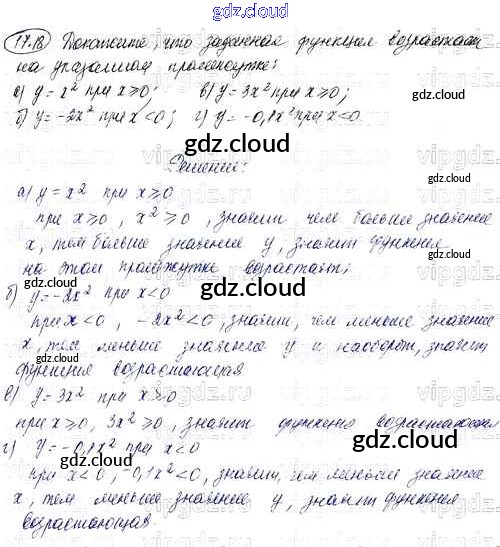 gdz.cloud
17.18 Докажите, что заданная функция возрастает
на указанном промежутке:
а) y = x² при x ≥ 0; в) y = 3x² при x ≥ 0;
б) y = -2x² при x < 0; г) y = -0,1x² при x < 0.
Решение:
а) y = x² при x ≥ 0
при x ≥ 0, x² ≥ 0, значит чем больше значение
x, тем больше значение y, значит функция
на этом промежутке возрастает;
б) y = -2x² при x < 0
при x < 0, -2x² < 0, значит, чем меньше значение
x, тем меньше значение y и наоборот, значит
функция возрастающая
в) y = 3x² при x ≥ 0
при x ≥ 0, 3x² ≥ 0, значит функция возрастающая
г) y = -0,1x² при x < 0
при x < 0, -0,1x² < 0, значит, чем меньше значение
x, тем меньше значение y, значит функция
возрастающая.